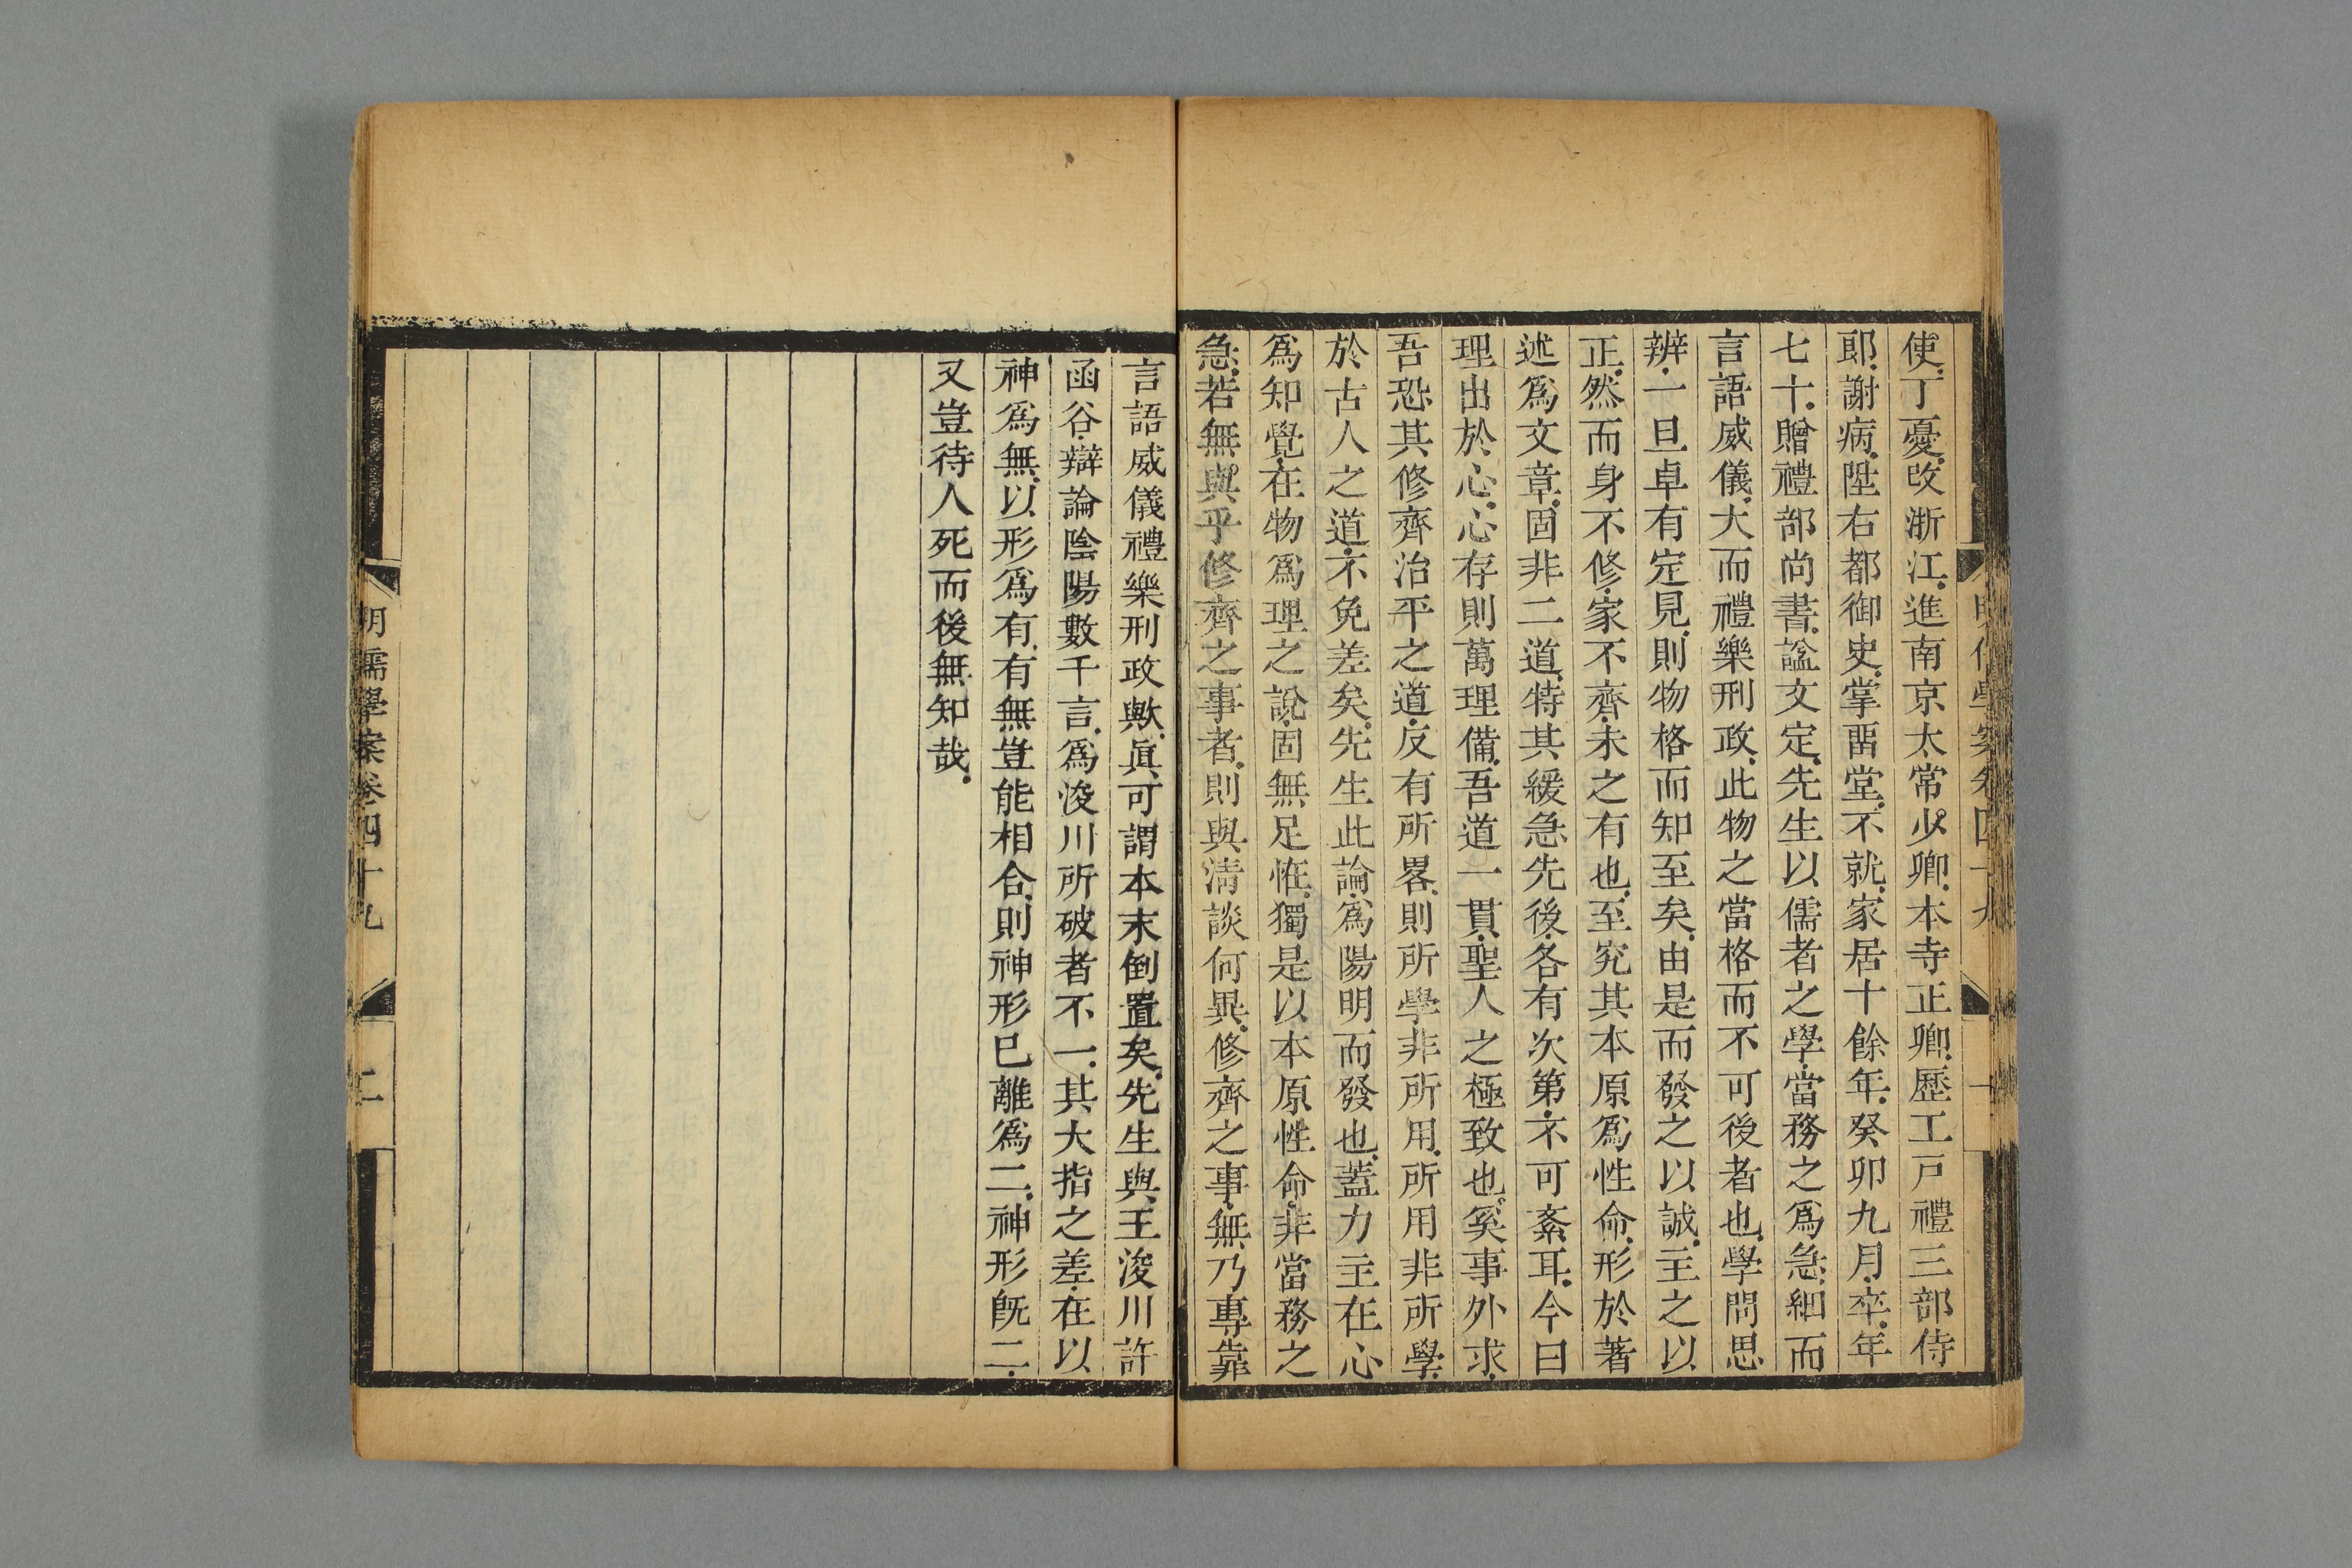 使.丁憂.改浙江.進南京太常少卿.本寺正卿.歷工戸禮三部侍
郎.謝病.陞右都御史.掌畱堂.不就.家居十餘年.癸卯九月.卒.年
七十.贈禮部尚書.諡文定.先生以儒者之學.當務之爲急.細而
言語威儀.大而禮樂刑政.此物之當格而不可後者也.學問思
辨.一旦卓有定見.則物格而知至矣.由是而發之以誠.主之以
正.然而身不修.家不齊.未之有也.至究其本原爲性命.形於著
述爲文章.固非二道.特其緩急先後.各有次第.不可紊耳.今曰
理出於心.心存則萬理備.吾道一貫.聖人之極致也.奚事外求.
吾恐其修齊治平之道.反有所畧.則所學非所用.所用非所學.
於古人之道.不免差矣.先生此論.爲陽明而發也.蓋力主在心
爲知覺.在物爲理之說.固無足恠.獨是以本原性命.非當務之
急.若無與乎修齊之事者.則與淸談何異.修齊之事.無乃專靠
言語威儀禮樂刑政歟.眞可謂本末倒置矣.先生與王浚川許
函谷.辯論陰陽數千言.爲浚川所破者不一.其大指之差.在以
神爲無.以形爲有.有無豈能相合.則神形已離爲二.神形旣二.
又豈待人死而後無知哉.
明儒學案卷四十九
二